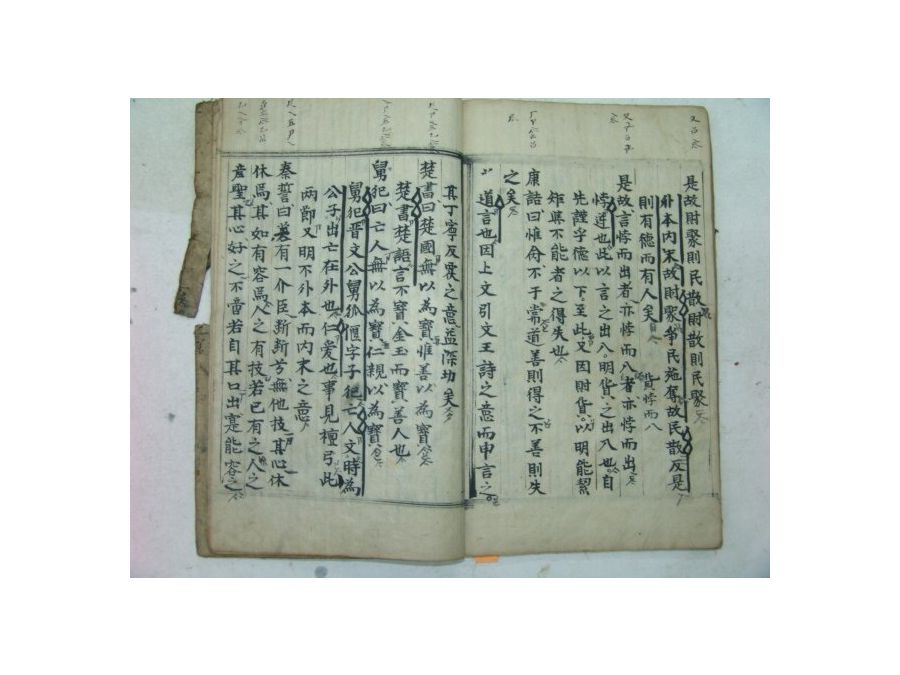 是故財聚則民散財散則民聚
外本內末故財聚爭民施奪故民散反是
則有德而有人矣
是故言悖而出者亦悖而入貨悖而入
者亦悖而出
悖逆也此以言之出入明貨之出入也自
先謹乎德以下至此又因財貨以明能絜
矩與不能者之得失也
康誥曰惟命不于常道善則得之不善則失
之矣
道言也因上文引文王詩之意而申言之
其丁寧反覆之意益深切矣
楚書曰楚國無以為寶惟善以為寶
楚書楚語言不寶金玉而寶善人也
舅犯曰亡人無以為寶仁親以為寶
舅犯晋文公舅狐偃字子犯亡人文時為
公子出亡在外也仁愛也事見檀弓此
兩節又明不外本而內末之意
秦誓曰若有一介臣斷斷兮無他技其心休
休焉其如有容焉人之有技若己有之人之
彦聖其心好之不啻若自其口出寔能容之